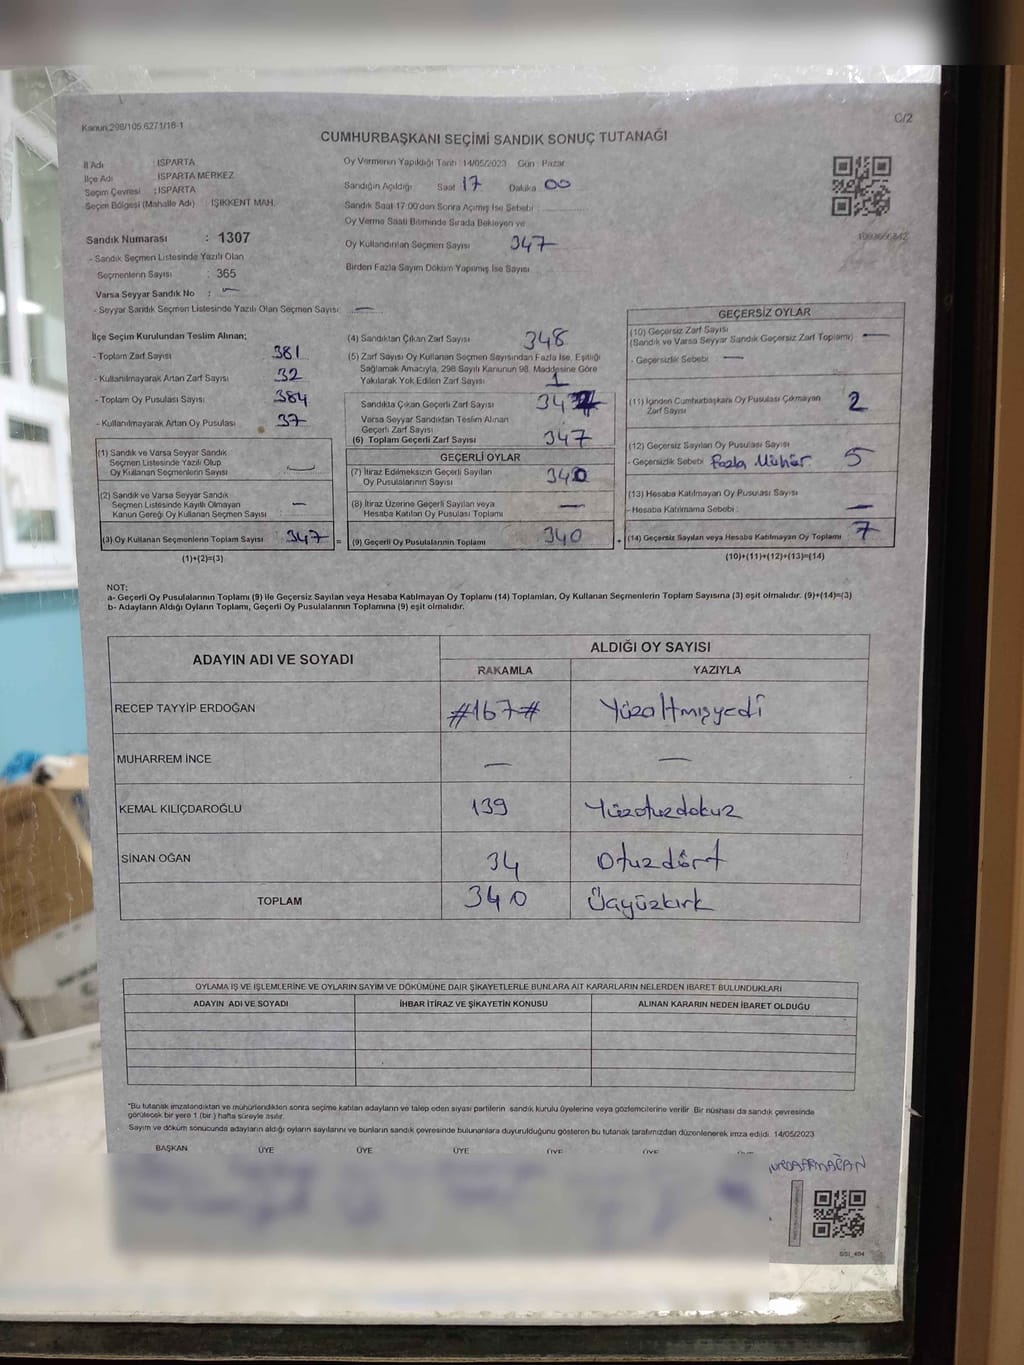 Kanun 298/105,6271/16-1
C/2
CUMHURBAŞKANI SEÇİMİ SANDIK SONUÇ TUTANAĞI
İl Adı : ISPARTA
İlçe Adı ISPARTA MERKEZ
Seçim Çevresi : ISPARTA
Seçim Bölgesi (Mahalle Adı) : IŞIKKENT MAH.
Sandık Numarası : 1307
- Sandık Seçmen Listesinde Yazılı Olan
Seçmenlerin Sayısı : 365
Varsa Seyyar Sandık No : —
- Seyyar Sandık Seçmen Listesinde Yazılı Olan Seçmen Sayısı : —
Oy Vermenin Yapıldığı Tarih : 14/05/2023 Gün : Pazar
Sandığın Açıldığı Saat 17 Dakika 00
Sandık Saat 17:00'den Sonra Açılmış İse Sebebi :
Oy Verme Saati Bitiminde Sırada Bekleyen ve
Oy Kullandırılan Seçmen Sayısı 347
Birden Fazla Sayım Döküm Yapılmış İse Sayısı
İlçe Seçim Kurulundan Teslim Alınan;
- Toplam Zarf Sayısı 381
- Kullanılmayarak Artan Zarf Sayısı 32
- Toplam Oy Pusulası Sayısı 384
- Kullanılmayarak Artan Oy Pusulası 37
(1) Sandık ve Varsa Seyyar Sandık
Seçmen Listesinde Yazılı Olup
Oy Kullanan Seçmenlerin Sayısı : —
(2) Sandık ve Varsa Seyyar Sandık
Seçmen Listesinde Kayıtlı Olmayan
Kanun Gereği Oy Kullanan Seçmen Sayısı : —
(3) Oy Kullanan Seçmenlerin Toplam Sayısı : 347 =
(1)+(2)=(3)
(4) Sandıktan Çıkan Zarf Sayısı 348
(5) Zarf Sayısı Oy Kullanan Seçmen Sayısından Fazla İse, Eşitliği
Sağlamak Amacıyla, 298 Sayılı Kanunun 98. Maddesine Göre
Yakılarak Yok Edilen Zarf Sayısı 1
Sandıkta Çıkan Geçerli Zarf Sayısı
Varsa Seyyar Sandıktan Teslim Alınan
Geçerli Zarf Sayısı
(6) Toplam Geçerli Zarf Sayısı 347
GEÇERLİ OYLAR
(7) İtiraz Edilmeksizin Geçerli Sayılan
Oy Pusulalarının Sayısı 340
(8) İtiraz Üzerine Geçerli Sayılan veya
Hesaba Katılan Oy Pusulası Toplamı —
(9) Geçerli Oy Pusulalarının Toplamı 340 +
GEÇERSİZ OYLAR
(10) Geçersiz Zarf Sayısı
(Sandık ve Varsa Seyyar Sandık Geçersiz Zarf Toplamı) —
- Geçersizlik Sebebi : —
(11) İçinden Cumhurbaşkanı Oy Pusulası Çıkmayan
Zarf Sayısı 2
(12) Geçersiz Sayılan Oy Pusulası Sayısı
- Geçersizlik Sebebi : Fazla Mühür 5
(13) Hesaba Katılmayan Oy Pusulası Sayısı
- Hesaba Katılmama Sebebi : —
(14) Geçersiz Sayılan veya Hesaba Katılmayan Oy Toplamı 7
(10)+(11)+(12)+(13)=(14)
NOT:
a- Geçerli Oy Pusulalarının Toplamı (9) ile Geçersiz Sayılan veya Hesaba Katılmayan Oy Toplamı (14) Toplamları, Oy Kullanan Seçmenlerin Toplam Sayısına (3) eşit olmalıdır. (9)+(14)=(3)
b- Adayların Aldığı Oyların Toplamı, Geçerli Oy Pusulalarının Toplamına (9) eşit olmalıdır.
ADAYIN ADI VE SOYADI
ALDIĞI OY SAYISI
RAKAMLA YAZIYLA
RECEP TAYYİP ERDOĞAN #167# Yüzaltmışyedi
MUHARREM İNCE — —
KEMAL KILIÇDAROĞLU 139 Yüzotuzdokuz
SİNAN OĞAN 34 Otuzdört
TOPLAM 340 Üçyüzkırk
OYLAMA İŞ VE İŞLEMLERİNE VE OYLARIN SAYIM VE DÖKÜMÜNE DAİR ŞİKAYETLERLE BUNLARA AİT KARARLARIN NELERDEN İBARET BULUNDUKLARI
ADAYIN ADI VE SOYADI İHBAR İTİRAZ VE ŞİKAYETİN KONUSU ALINAN KARARIN NEDEN İBARET OLDUĞU
"Bu tutanak imzalandıktan ve mühürlendikten sonra seçime katılan adayların ve talep eden siyasi partilerin sandık kurulu üyelerine veya gözlemcilerine verilir. Bir nüshası da sandık çevresinde
görülecek bir yere 1 (bir) hafta süreyle asılır.
Sayım ve döküm sonucunda adayların aldığı oyların sayılarını ve bunların sandık çevresinde bulunanlara duyurulduğunu gösteren bu tutanak tarafımızdan düzenlenerek imza edildi. 14/05/2023
BAŞKAN ÜYE ÜYE ÜYE ÜYE ÜYE